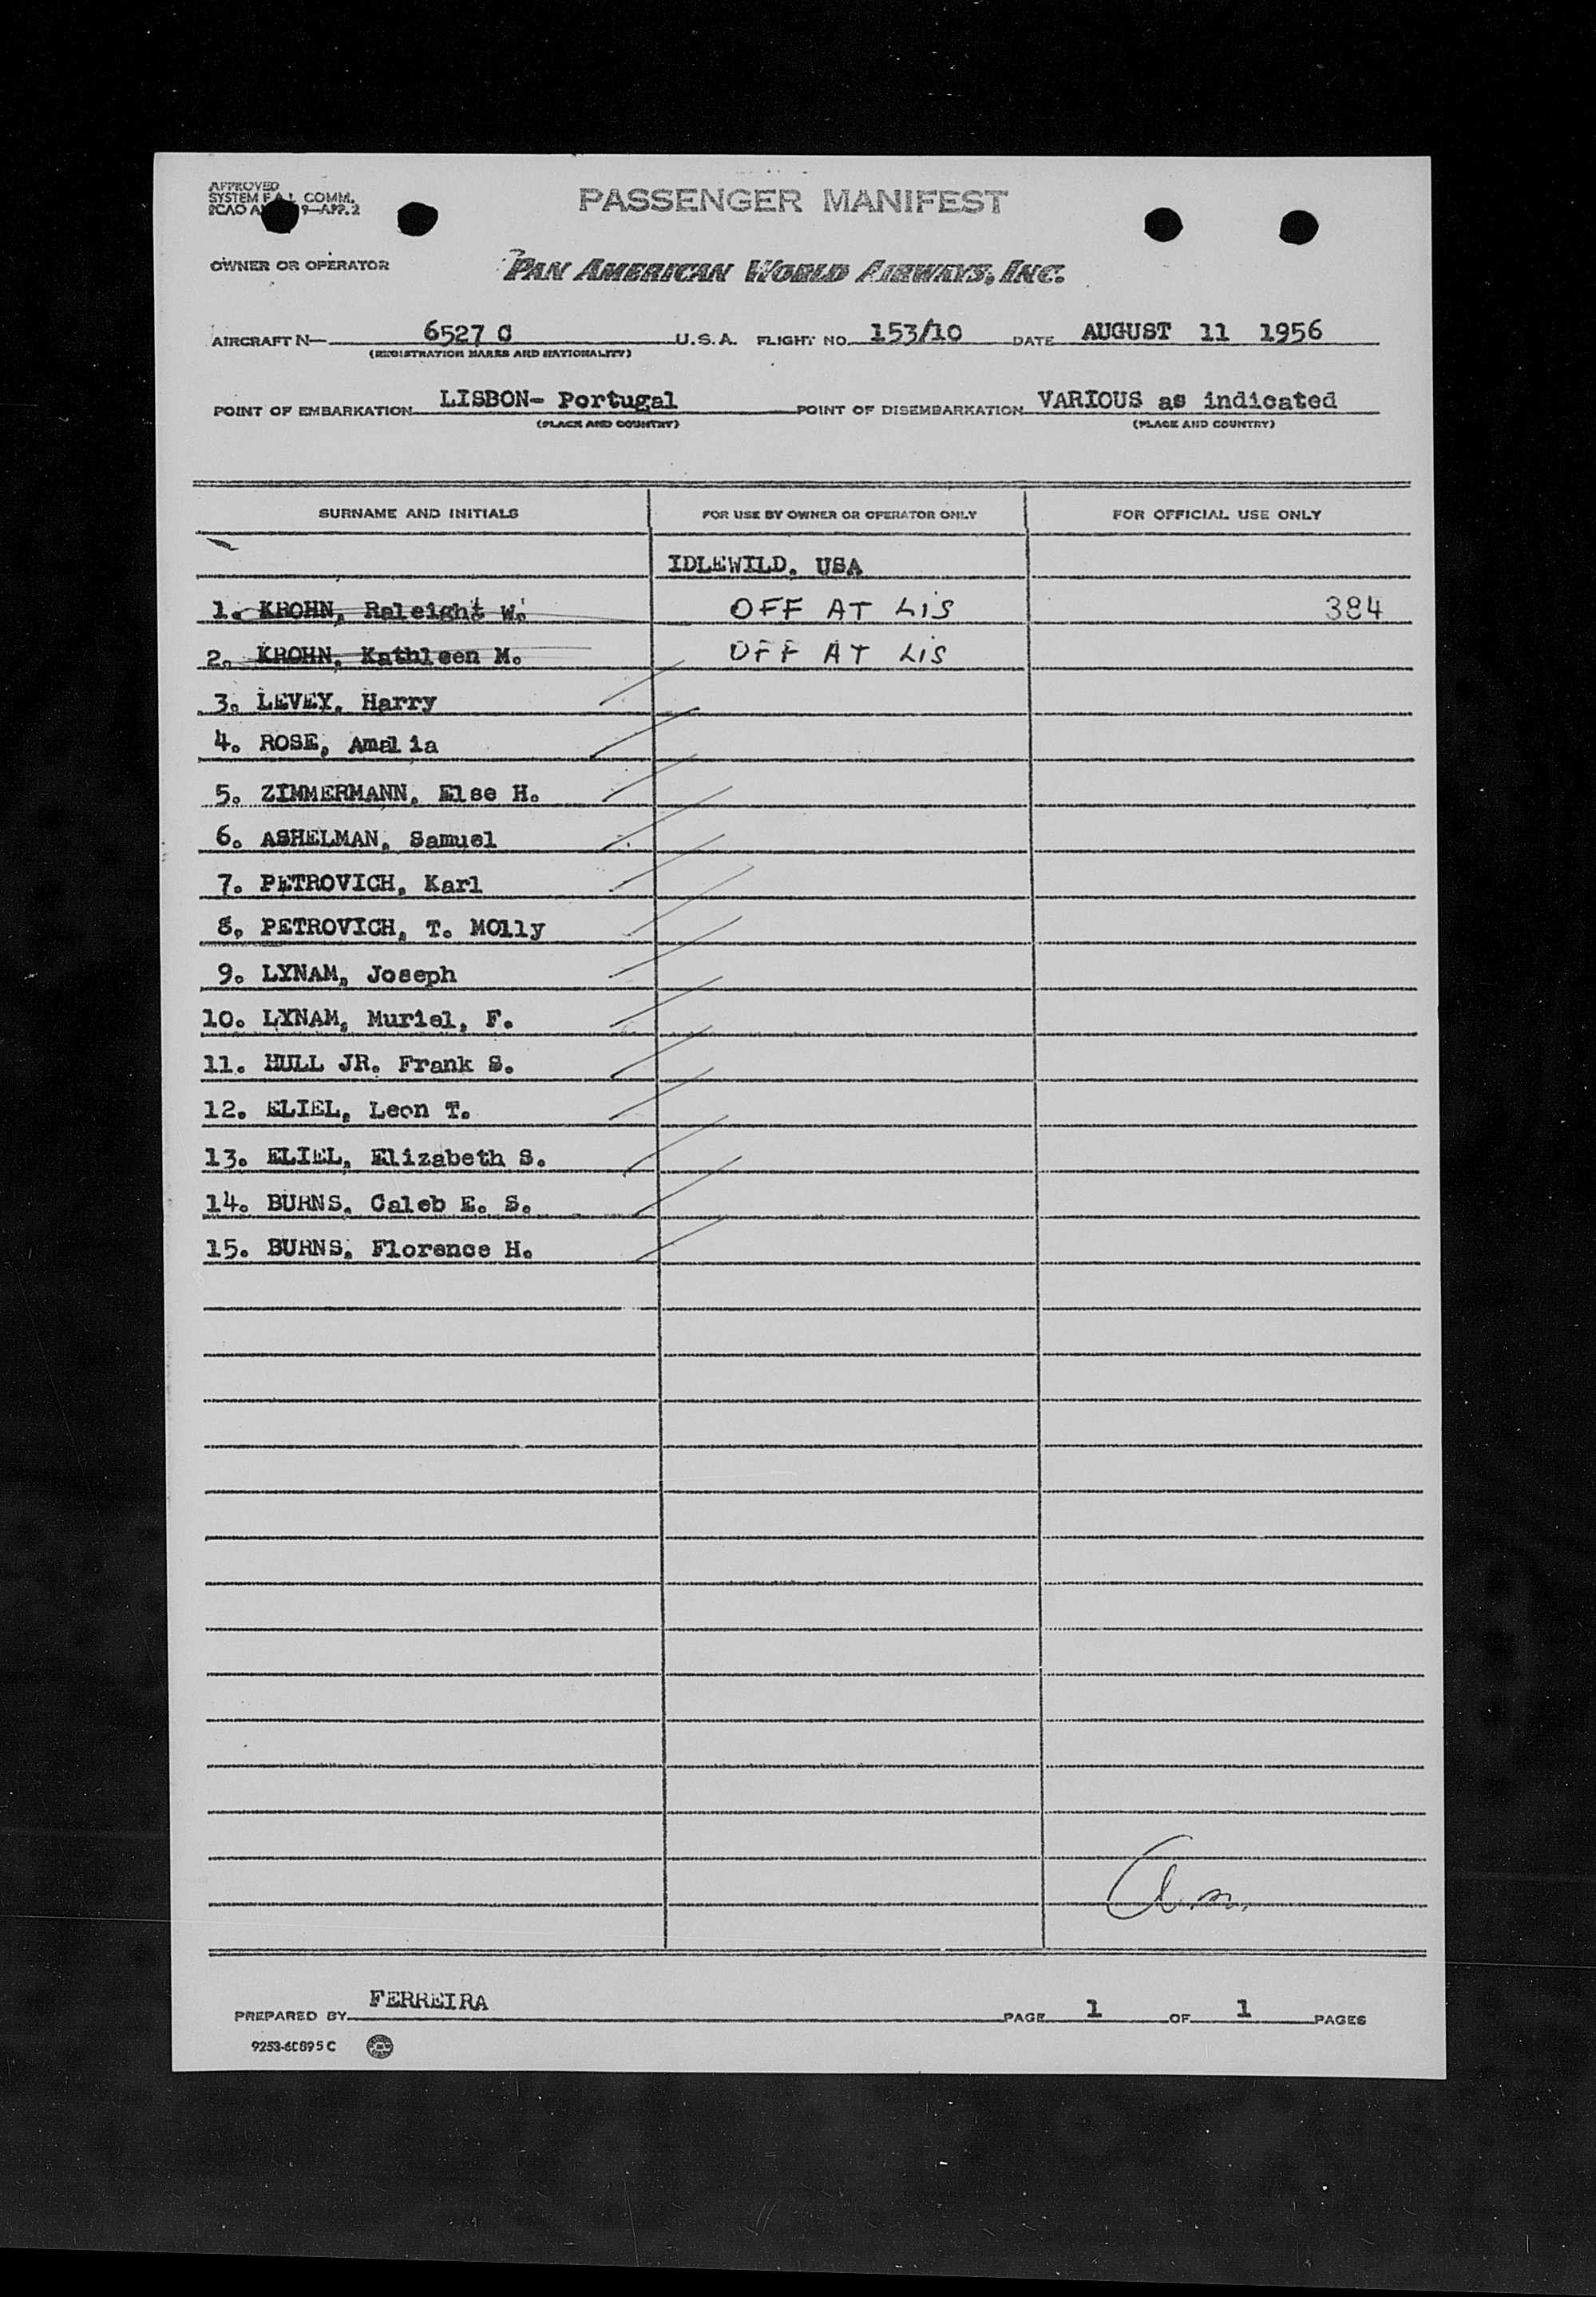 APPROVED
SYSTEM F.A.L. COMM.
ICAO 9—APP.2
PASSENGER MANIFEST
OWNER OR OPERATOR
PAN AMERICAN WORLD AIRWAYS, INC.
AIRCRAFT N— 6527 C U.S.A. FLIGHT NO. 153/10 DATE AUGUST 11 1956
(REGISTRATION MARKS AND NATIONALITY)
POINT OF EMBARKATION LISBON- Portugal POINT OF DISEMBARKATION VARIOUS as indicated
(PLACE AND COUNTRY) (PLACE AND COUNTRY)
SURNAME AND INITIALS FOR USE BY OWNER OR OPERATOR ONLY FOR OFFICIAL USE ONLY
IDLEWILD, USA
1. KROHN, Raleight W. OFF AT LIS 384
2. KROHN, Kathleen M. OFF AT LIS
3. LEVEY, Harry
4. ROSE, Amalia
5. ZIMMERMANN, Else H.
6. ASHELMAN, Samuel
7. PETROVICH, Karl
8. PETROVICH, T. MOlly
9. LYNAM, Joseph
10. LYNAM, Muriel, F.
11. HULL JR. Frank S.
12. ELIEL, Leon T.
13. ELIEL, Elizabeth S.
14. BURNS, Caleb E. S.
15. BURNS, Florence H.
PREPARED BY FERREIRA PAGE 1 OF 1 PAGES